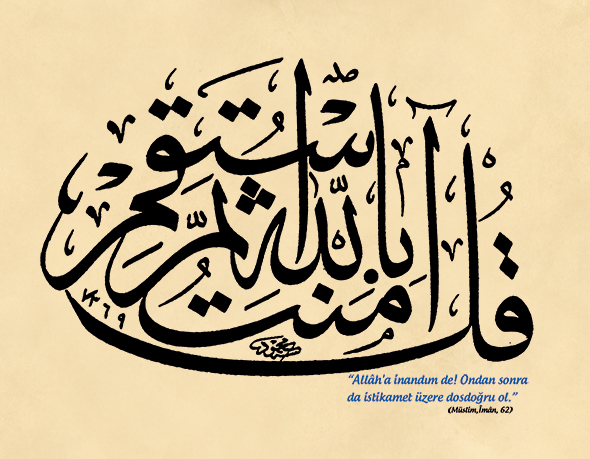 قُلْ آمَنْتُ بِاللهِ ثُمَّ اسْتَقِمْ
١٣٦٩
“Allâh’a inandım de! Ondan sonra
da istikamet üzere dosdoğru ol.”
(Müslim,Îmân, 62)